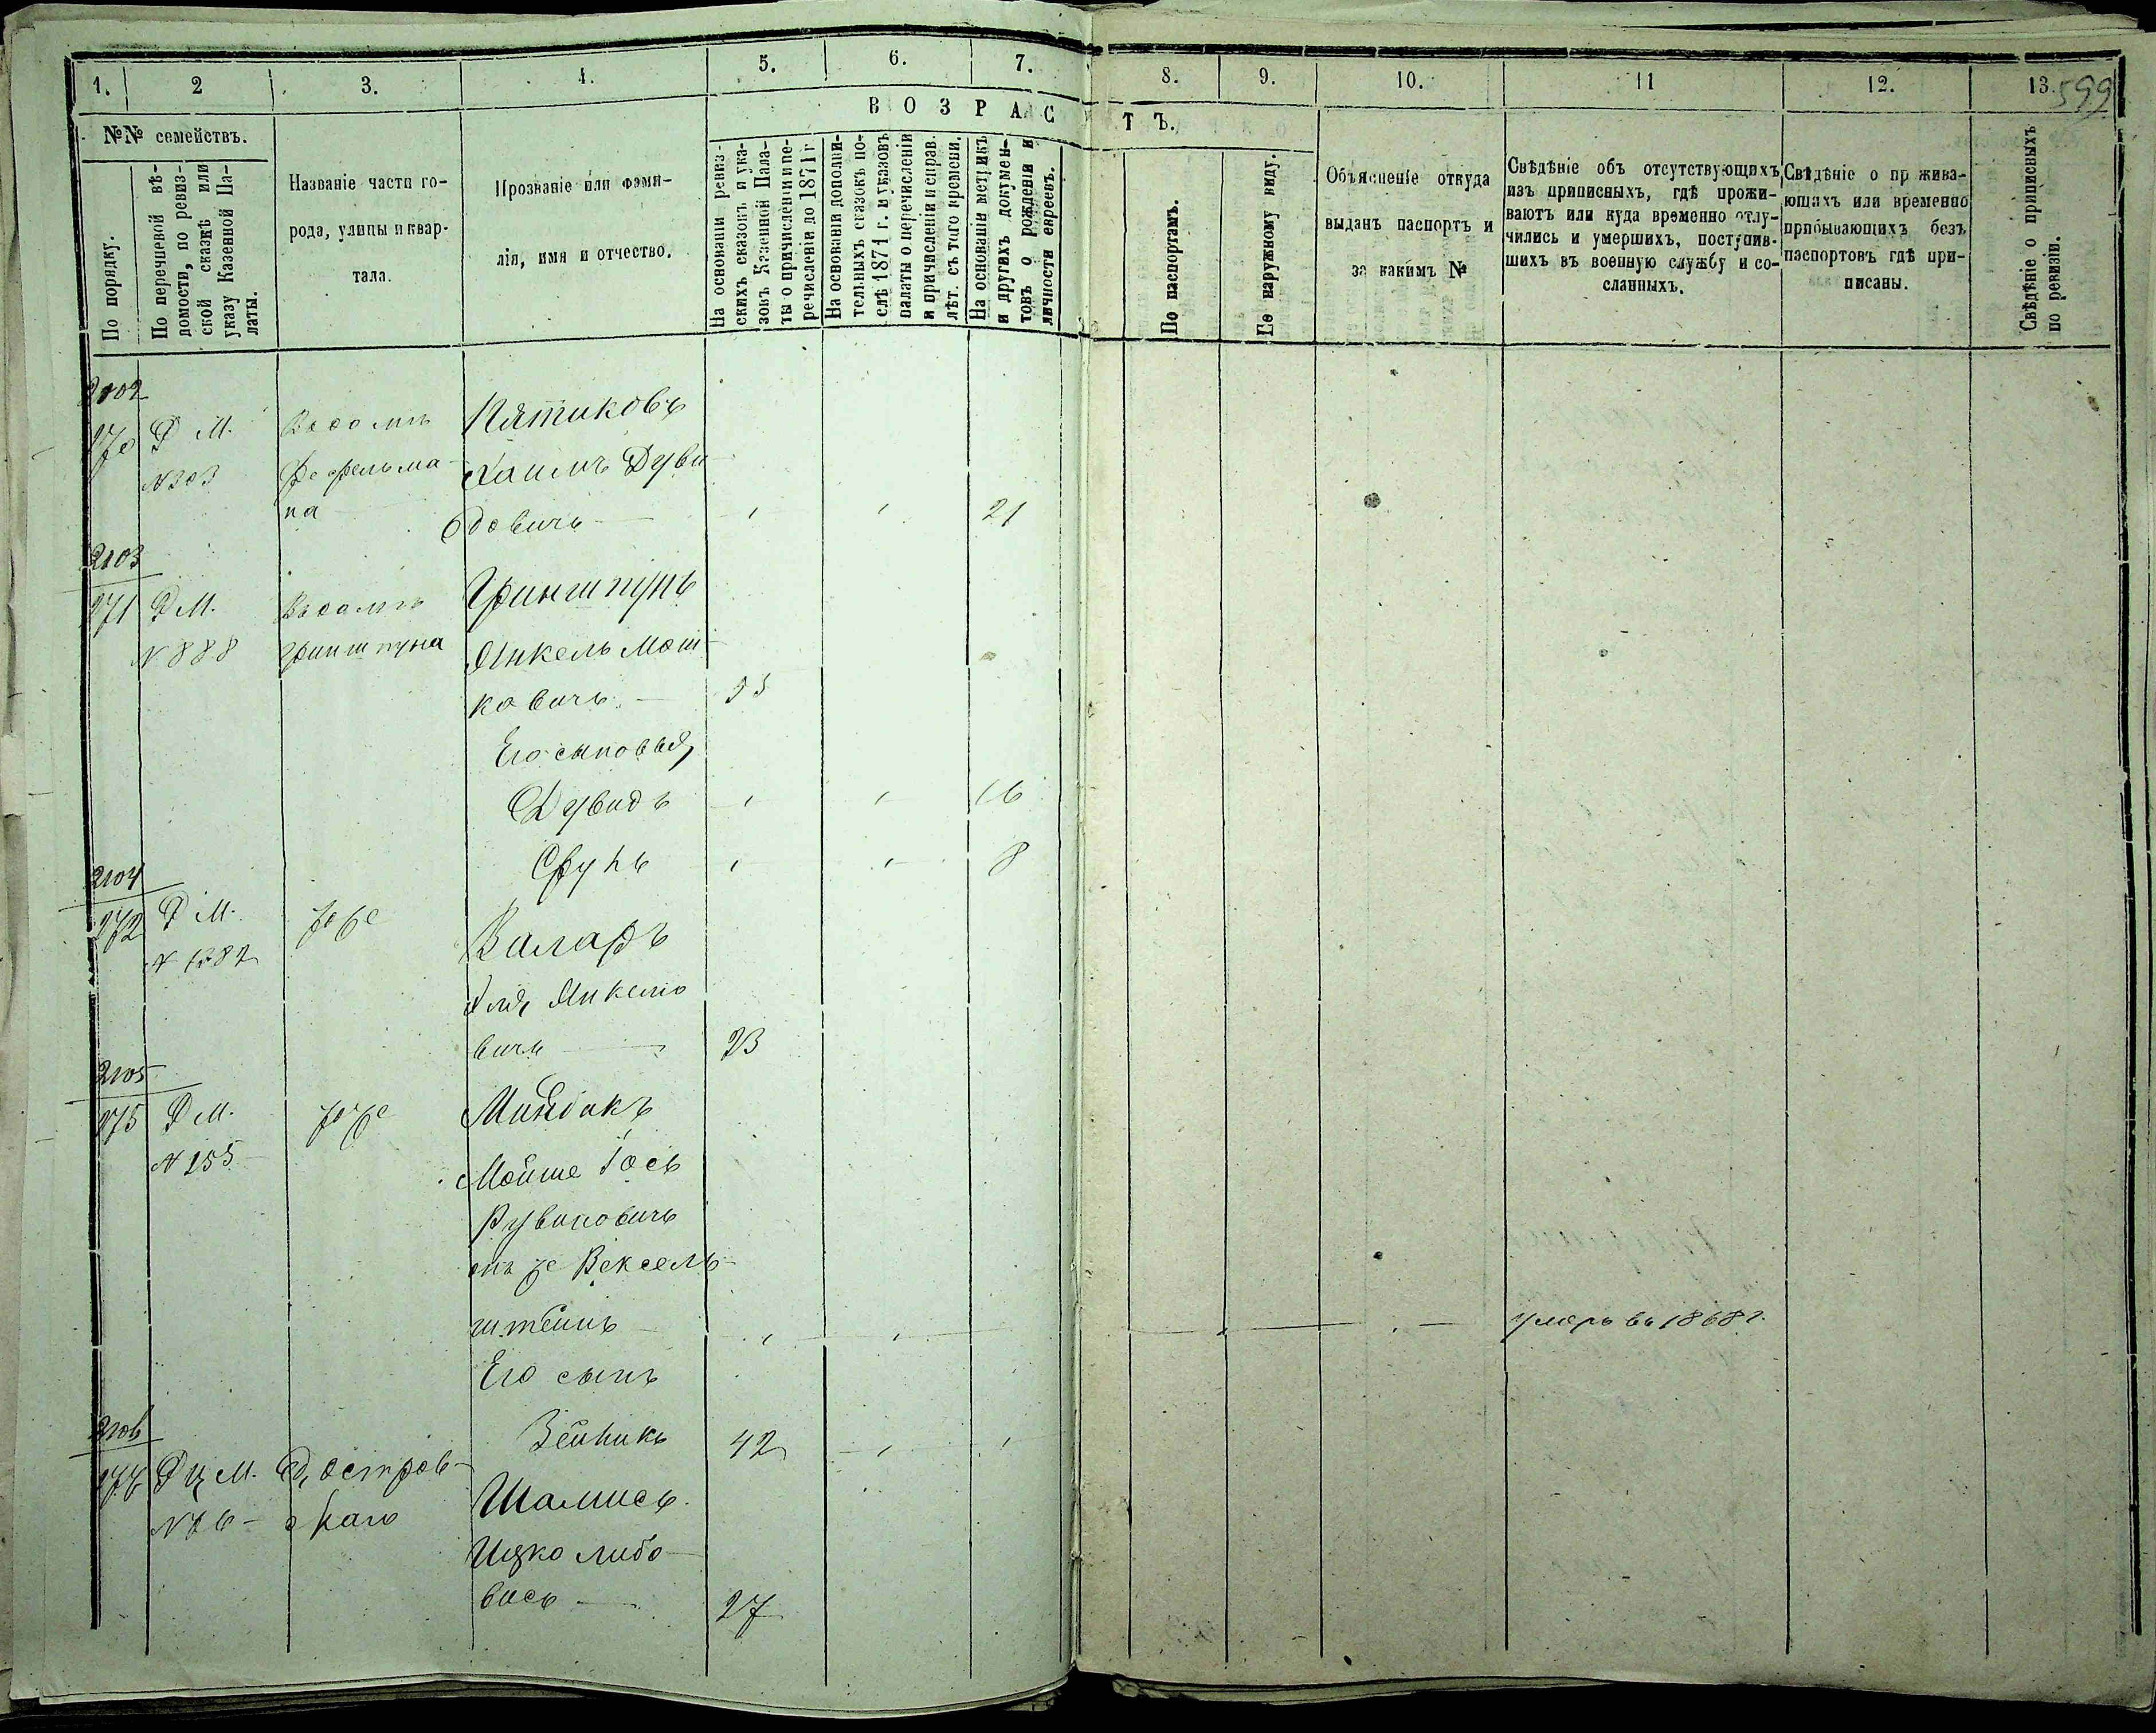 1. 2 3. 4. 5. 6. 7. 8. 9. 10. 11 12. 13.
599
ВОЗРАСТЪ.
№№ семействъ.
По порядку.
По перечневой вѣ-
домости, по ревиз-
ской сказкѣ или
указу Казенной Па-
латы.
Названіе части го-
рода, улицы и квар-
тала.
Прозваніе или фами-
лія, имя и отчество.
На основаніи ревиз-
скихъ сказокъ и ука-
зовъ Казенной Пала-
ты о причисленіи и пе-
речисленіи до 1871 г
На основаніи дополни-
тельныхъ сказокъ по-
слѣ 1871 г. и указовъ
палаты о перечисленіи
и причисленіи и справ.
лѣт. съ того времени.
На основаніи метрикъ
и другихъ докумен-
товъ о рожденіи и
личности евреевъ.
По паспортамъ.
По наружному виду.
Объясненіе откуда
выданъ паспортъ и
за какимъ №
Свѣдѣніе объ отсутствующихъ
изъ приписныхъ, гдѣ прожи-
ваютъ или куда временно отлу-
чились и умершихъ, поступив-
шихъ въ военную службу и со-
сланныхъ.
Свѣдѣніе о пр жива-
ющахъ или временно
прибывающихъ безъ
паспортовъ гдѣ при-
писаны.
Свѣдѣніе о приписныхъ
по ревизіи.
2102
270 Д М. Пятиковъ
№ 303 Хаимъ Дуви-
на довичъ 21
2103
271 Д М. Гриншпунъ
№ 888 Гриншпуна Янкель Мош-
ковичъ 55
Его сыновья,
Дувидъ 16
Срулъ 8
2104
272 Д М. тоже Валаръ
Эля Янкелю
вичъ 23
2105
275 Д М. тоже
№ 155 Мойше Іось
Рувиновичъ
онъ же Вексель-
штейнъ умеръ въ 1868 г.
Его сынъ
Зейникъ 42
2106
Д ц М. д, Остров-
скаго Шамисъ
Ицко Либо-
вись 27